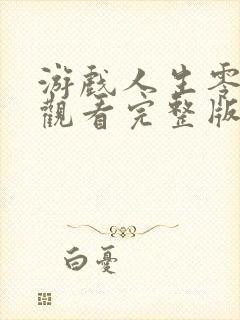 游戲人生零
觀看完整版
白憂